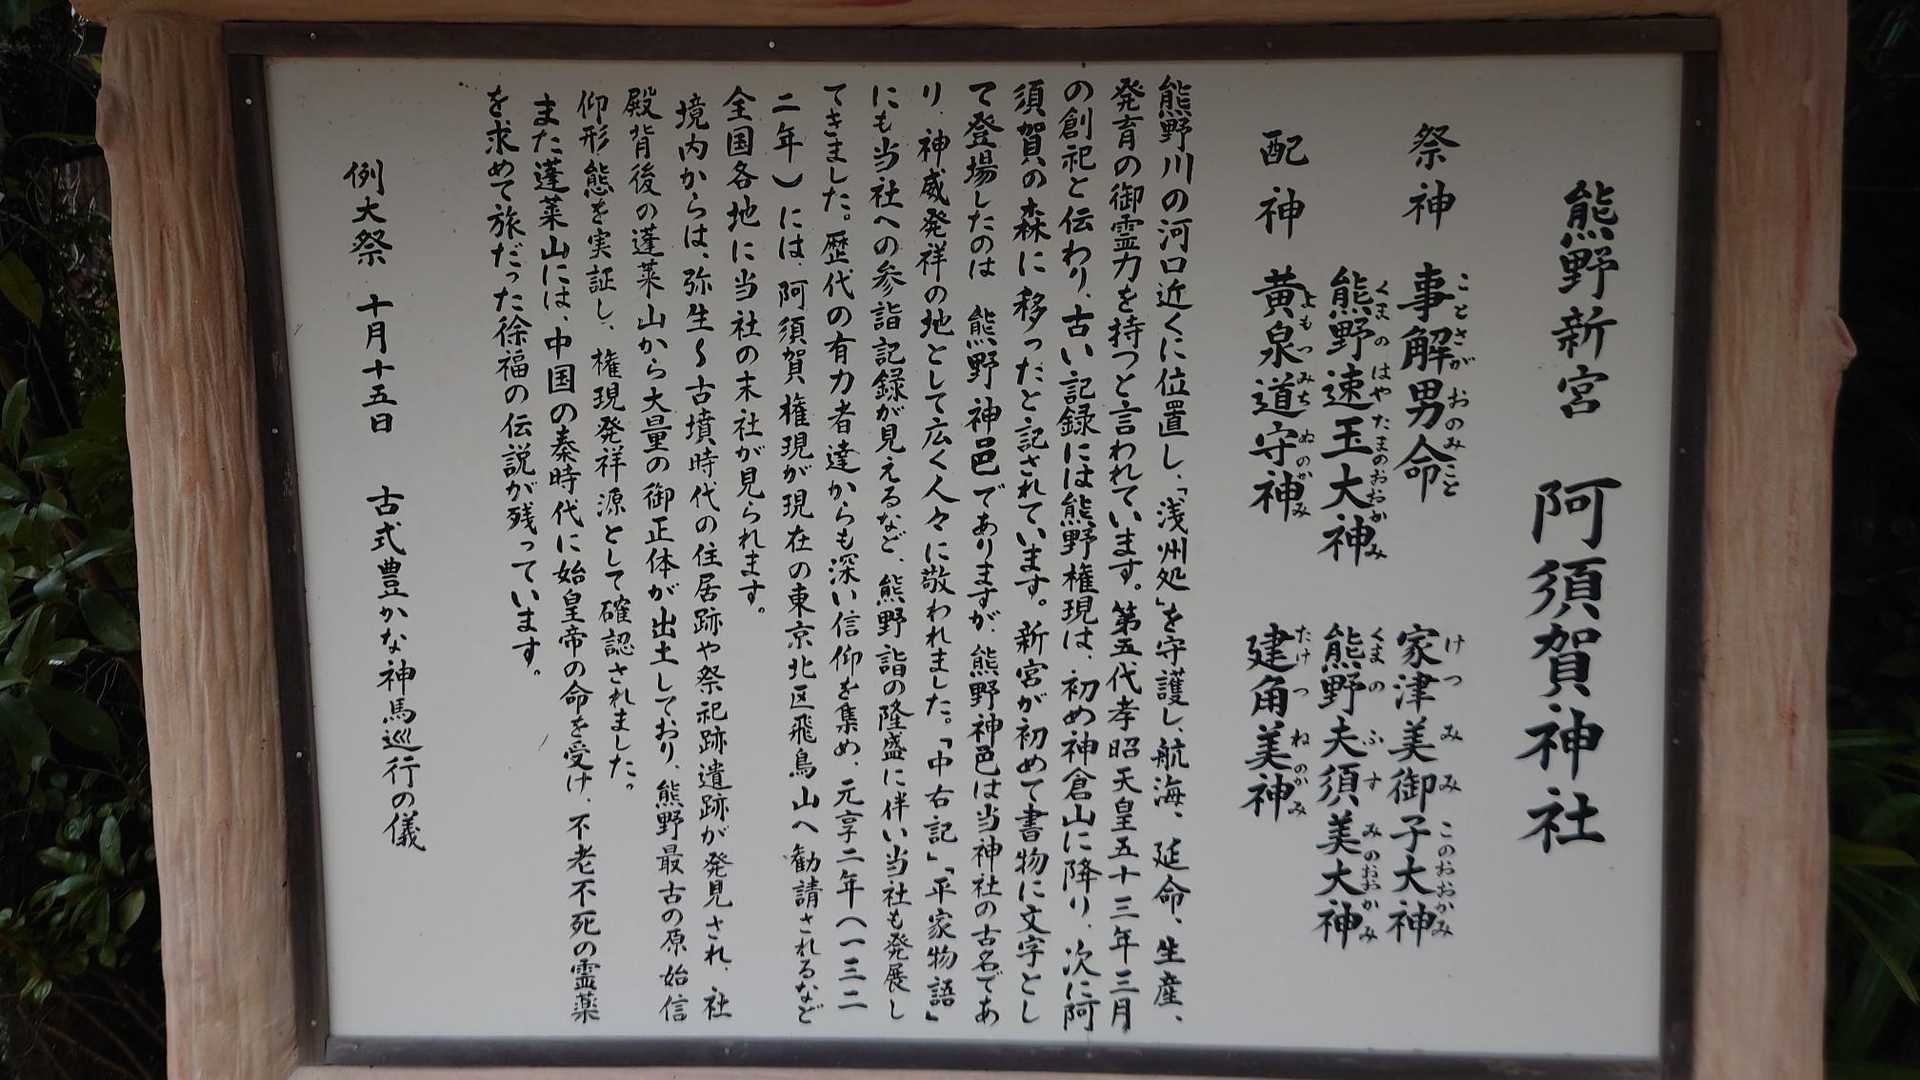 熊野新宮　阿須賀神社
祭神　事解男命　家津美御子大神
ことさかおのみこと　けつみみこのおおかみ
熊野速玉大神　熊野夫須美大神
くまのはやたまのおおかみ　くまのふすみのおおかみ
配神　黄泉道守神　建角美神
よもつみちぬのかみ　たけつねのかみ
熊野川の河口近くに位置し、「浅州処」を守護し、航海、延命、生産、
発育の御霊力を持つと言われています。第五代孝昭天皇五十三年三月
の創祀と伝わり、古い記録には熊野権現は、初め神倉山に降り、次に阿
須賀の森に移ったと記されています。新宮が初めて書物に文字とし
て登場したのは 熊野神邑でありますが、熊野神邑は当神社の古名であ
り、神威発祥の地として広く人々に敬われました。「中右記」「平家物語」
にも当社への参詣記録が見えるなど、熊野詣の隆盛に伴い当社も発展し
てきました。歴代の有力者達からも深い信仰を集め、元享二年（一三二
二年）には、阿須賀権現が現在の東京北区飛鳥山へ勧請されるなど
全国各地に当社の末社が見られます。
境内からは、弥生〜古墳時代の住居跡や祭祀跡遺跡が発見され、社
殿背後の蓬莱山から大量の御正体が出土しており、熊野最古の原始信
仰形態を実証し、権現発祥源として確認されました。
また蓬莱山には、中国の秦時代に始皇帝の命を受け、不老不死の霊薬
を求めて旅だった徐福の伝説が残っています。
例大祭　十月十五日　古式豊かな神馬巡行の儀